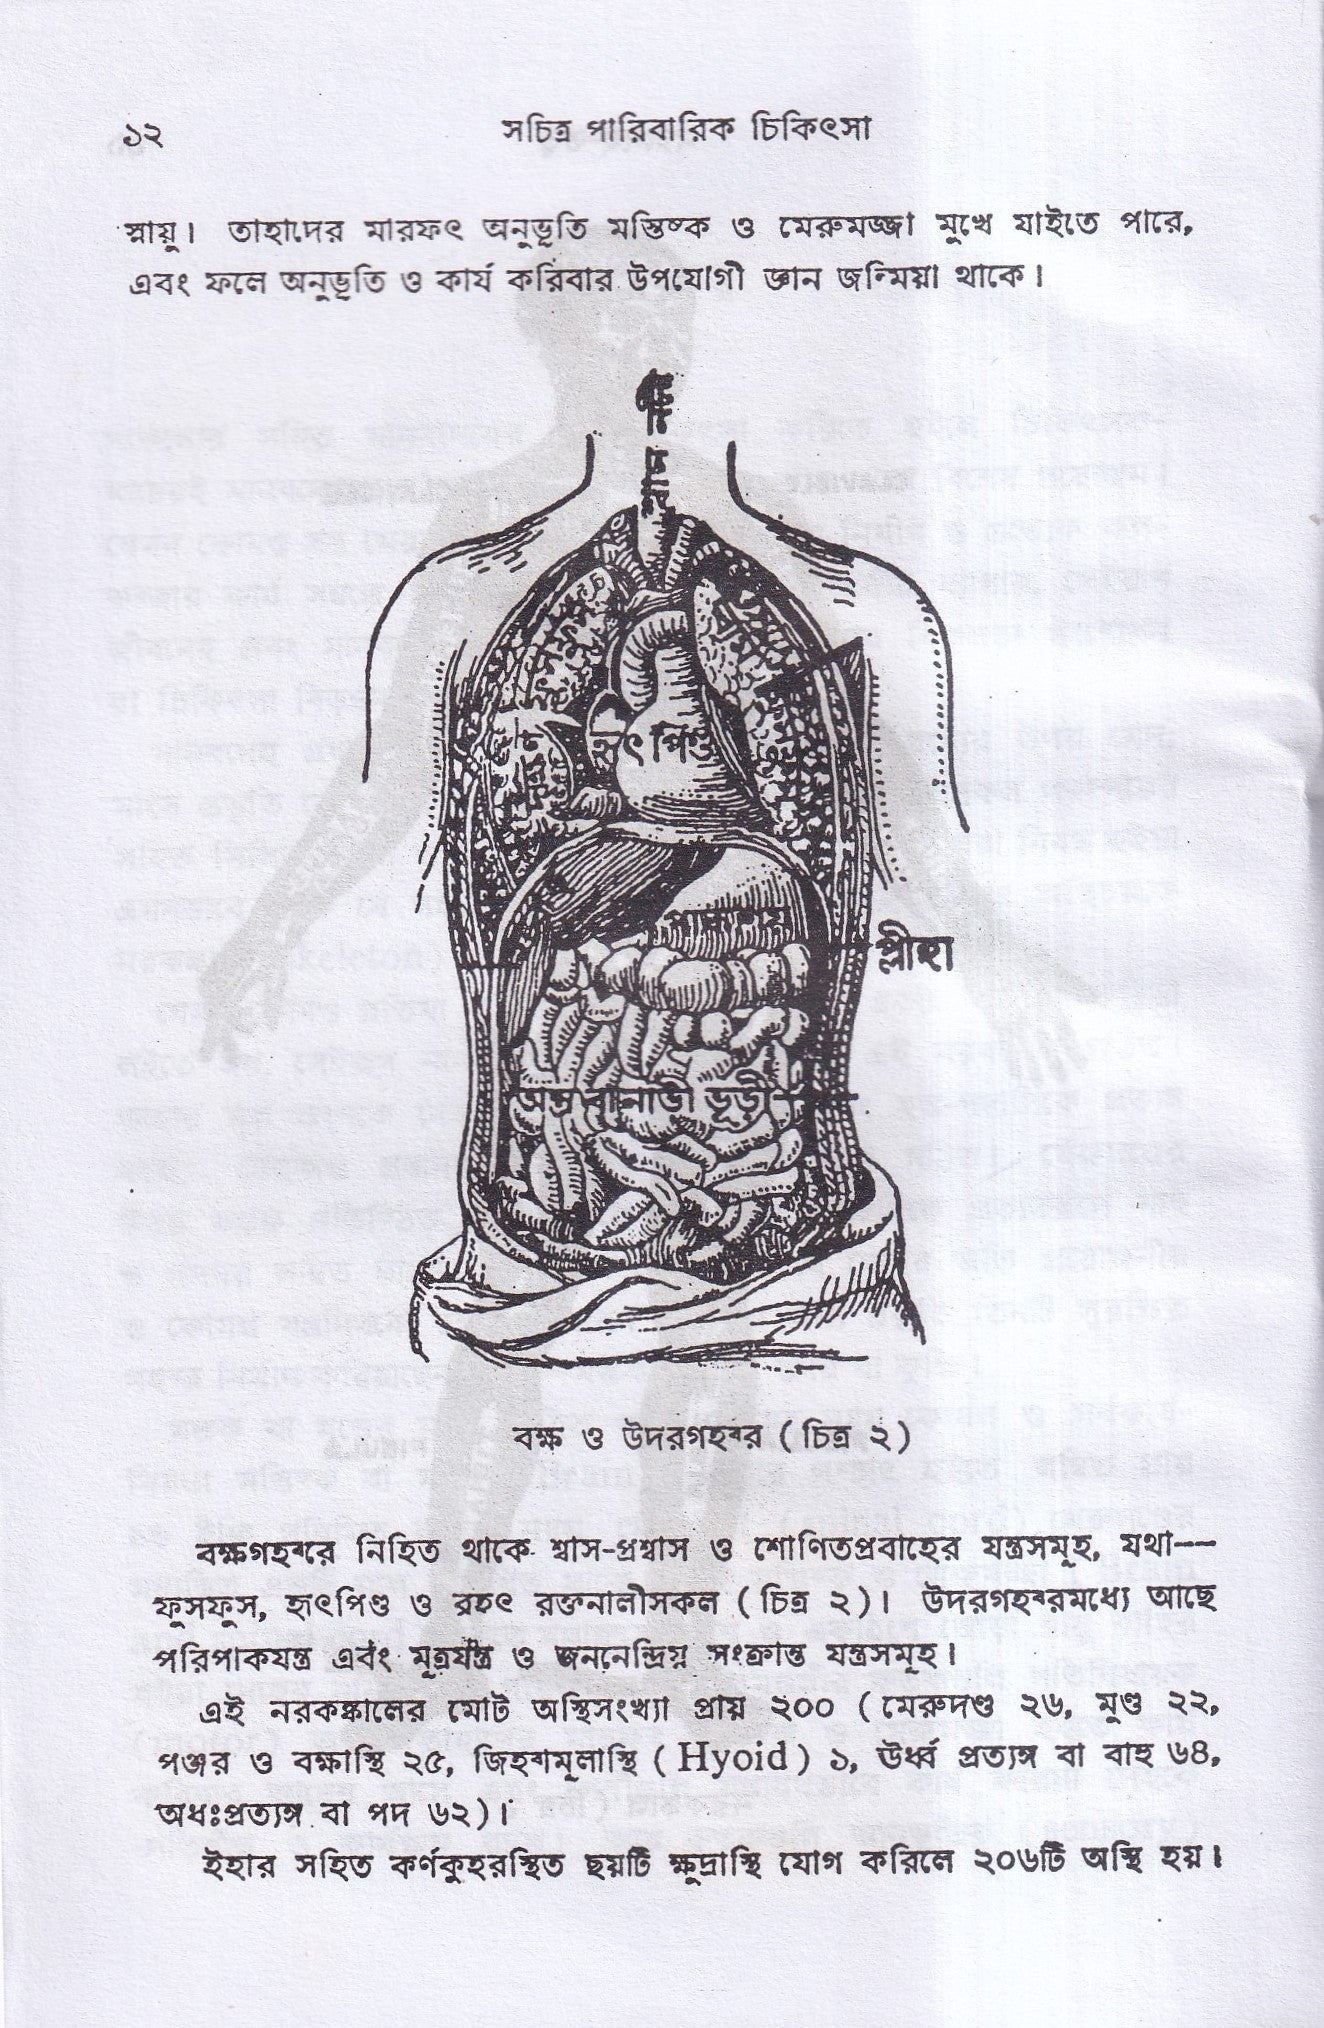 ১২
সচিত্র পারিবারিক চিকিৎসা
স্নায়ু। তাহাদের মারফৎ অনুভূতি মস্তিষ্ক ও মেরুমজ্জা মুখে যাইতে পারে,
এবং ফলে অনুভূতি ও কার্য করিবার উপযোগী জ্ঞান জন্মিয়া থাকে।
শ্বাস নলী
হৃৎপিণ্ড
পাকাশয়
প্লীহা
অন্ত্র বা নাড়ী ভূড়ী
বক্ষ ও উদরগহ্বর ( চিত্র ২ )
বক্ষগহ্বরে নিহিত থাকে শ্বাস-প্রশ্বাস ও শোণিতপ্রবাহের যন্ত্রসমূহ, যথা—
ফুসফুস, হৃৎপিণ্ড ও বৃহৎ রক্তনালীসকল ( চিত্র ২ )। উদরগহ্বরমধ্যে আছে
পরিপাকযন্ত্র এবং মূত্রযন্ত্র ও জননেন্দ্রিয় সংক্রান্ত যন্ত্রসমূহ।
এই নরকঙ্কালের মোট অস্থিসংখ্যা প্রায় ২০০ ( মেরুদণ্ড ২৬, মুণ্ড ২২,
পঞ্জর ও বক্ষাস্থি ২৫, জিহ্বামূলাস্থি ( Hyoid ) ১, ঊর্ধ্ব প্রত্যঙ্গ বা বাহু ৬৪,
অধঃপ্রত্যঙ্গ বা পদ ৬২ )।
ইহার সহিত কর্ণকুহরস্থিত ছয়টি ক্ষুদ্রাস্থি যোগ করিলে ২০৬টি অস্থি হয়।